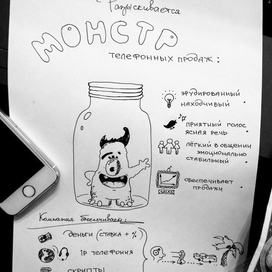 Разыскивается
МОНСТР
телефонных продаж:
эрудированный
находчивый
приятный голос
ясная речь
лёгкий в общении
эмоционально
стабильный
обеспечивает
продажи
Компания обеспечивает:
деньги (ставка + %)
IP телефония
скрипты